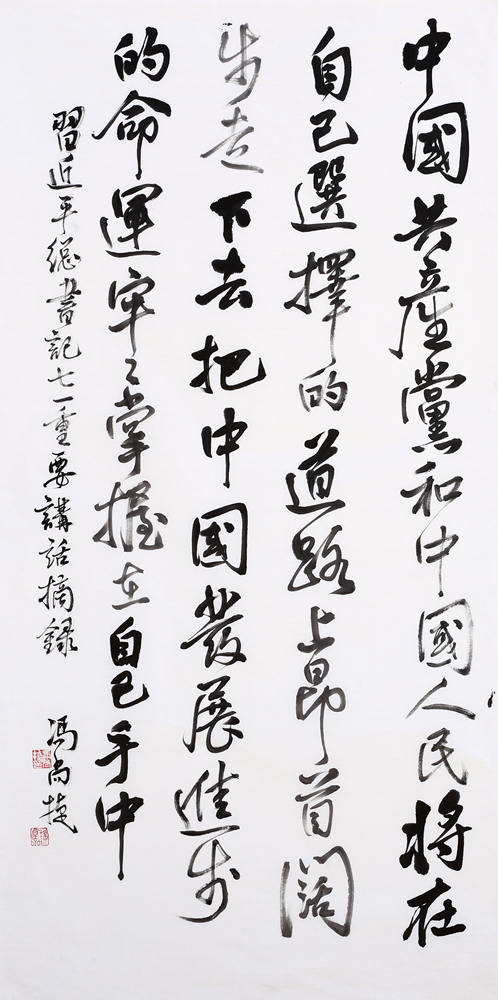 中國共產黨和中國人民將在
自己選擇的道路上昂首闊
步走下去把中國發展進步
的命運牢々掌握在自己手中
習近平總書記七一重要講話摘錄
馮尚捷